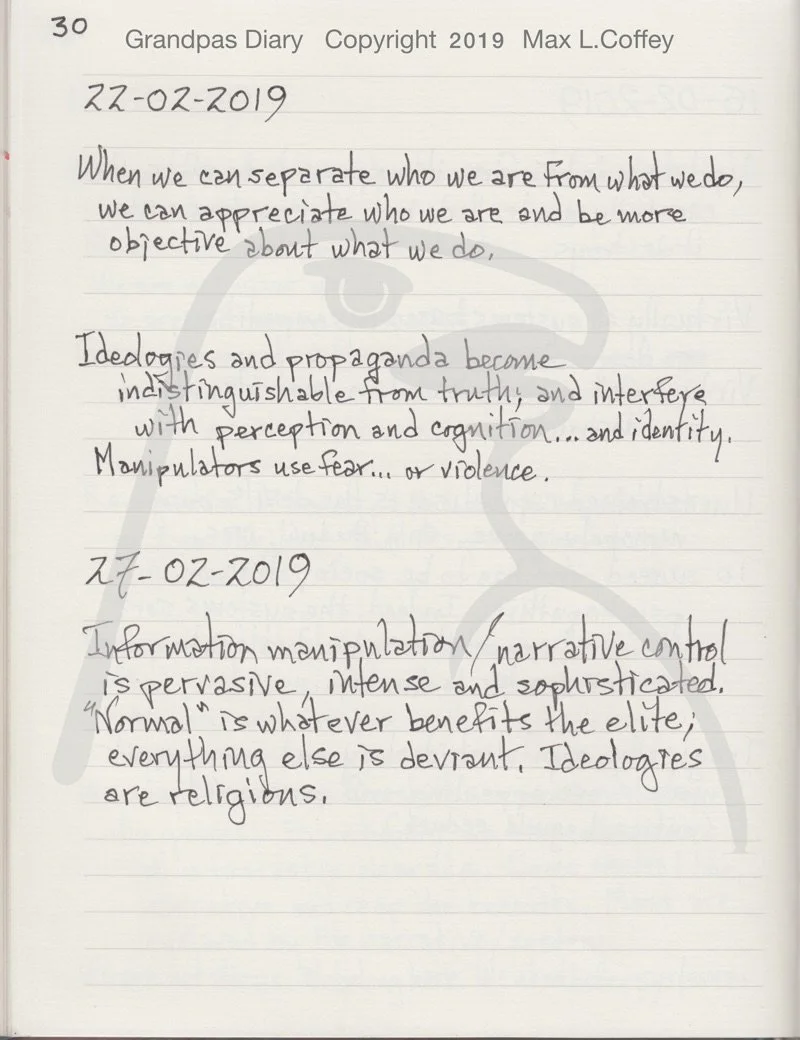 30
Grandpas Diary Copyright 2019 Max L.Coffey
22-02-2019
When we can separate who we are from what we do,
we can appreciate who we are and be more
objective about what we do.
Ideologies and propaganda become
indistinguishable from truth; and interfere
with perception and cognition... and identity.
Manipulators use fear... or violence.
27-02-2019
Information manipulation/narrative control
is pervasive, intense and sophisticated.
"Normal" is whatever benefits the elite;
everything else is deviant. Ideologies
are religions.